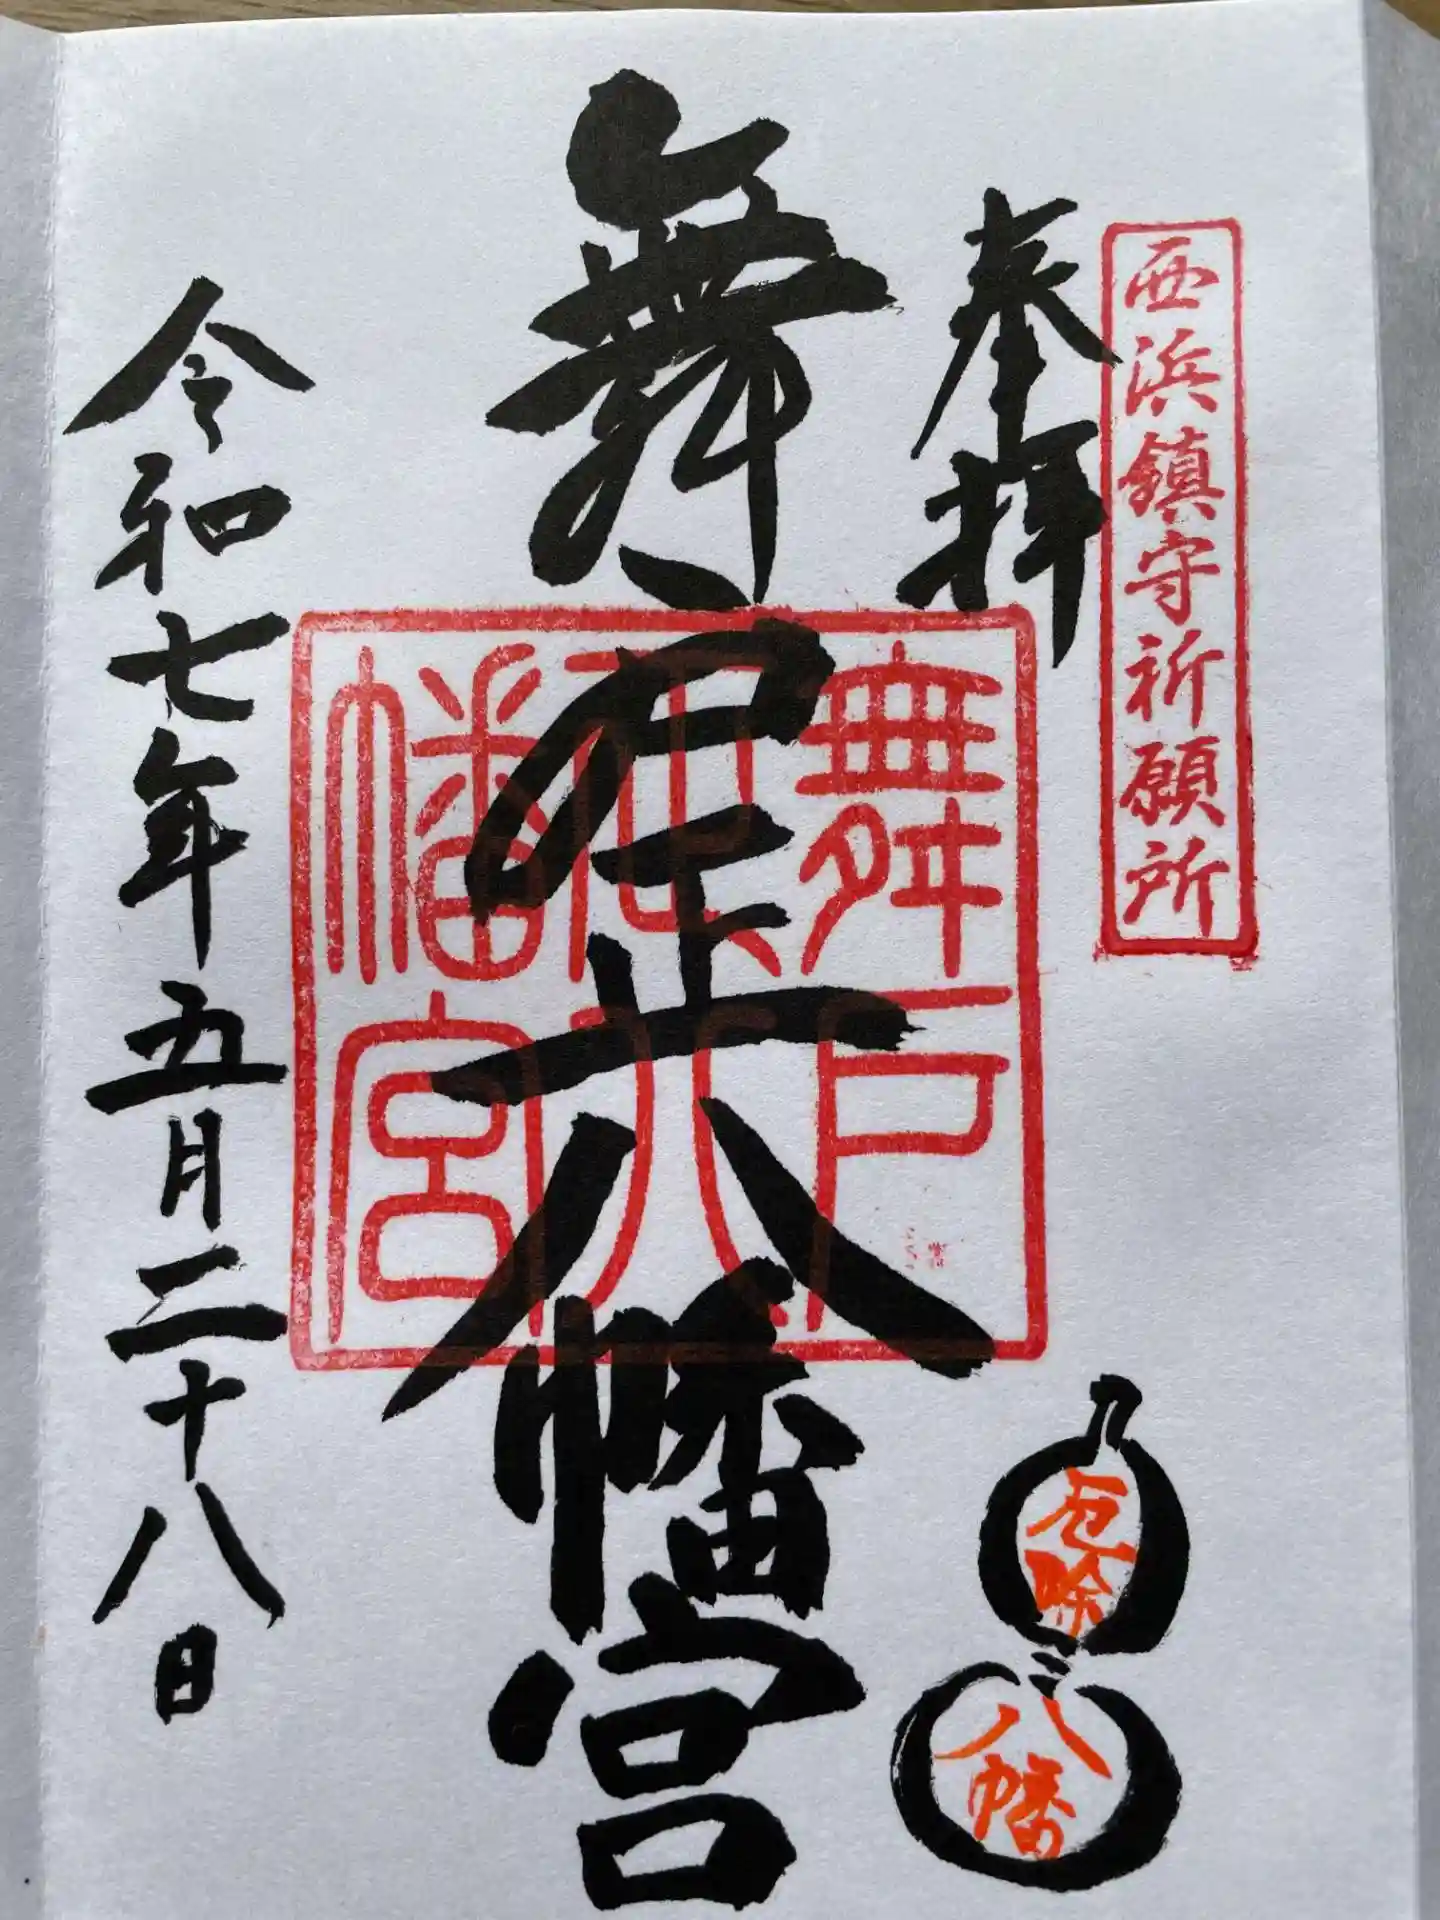 西浜鎮守祈願所
奉拝
厄除
八幡
舞戸正八幡宮
舞戸
八
幡宮
令和七年五月二十八日